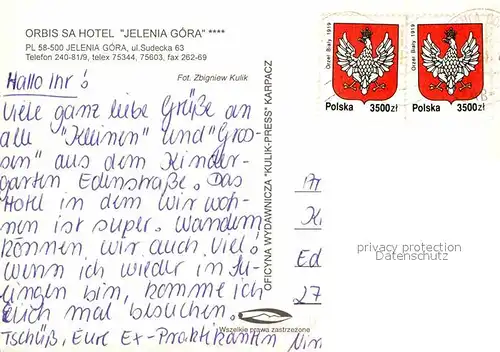 ORBIS SA HOTEL "JELENIA GÓRA" ****
PL 58-500 JELENIA GÓRA, ul.Sudecka 63
Telefon 240-81/9, telex 75344, 75603, fax 262-69
Fot. Zbigniew Kulik
Hallo Ihr!
Viele ganz liebe Grüße an
alle "Kleinen" und "Gros-
sen" aus dem Kinder-
garten Edenstraße. Das
Hotel in dem wir woh-
nen ist super. Wandern
können wir auch viel.
Wenn ich wieder in
bin, komme ich
Euch mal besuchen.
Tschüß, Eure Ex-Praktikantin
OFICYNA WYDAWNICZA "KULIK-PRESS" KARPACZ
Wszelkie prawa zastrzeżone
Orzeł Biały 1919
Polska 3500zł
Orzeł Biały 1919
Polska 3500zł
Ed
27
privacy protection
Datenschutz